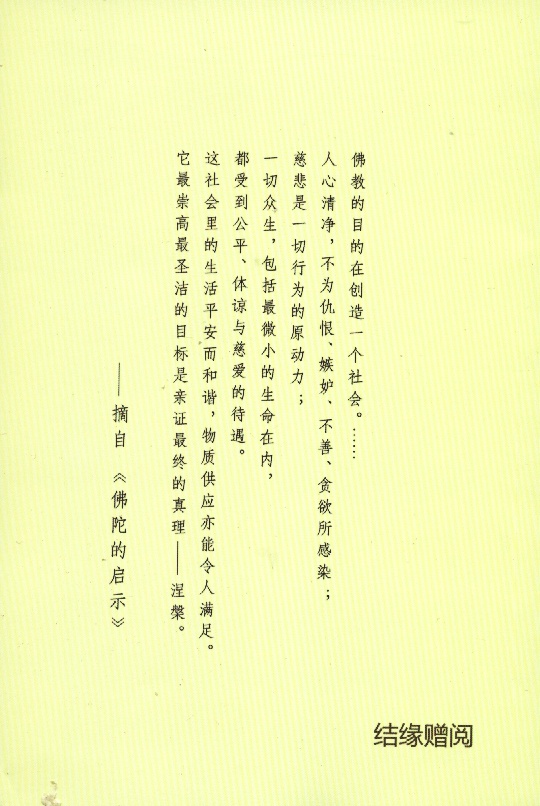 佛教的目的在创造一个社会。……
人心清净，不为仇恨、嫉妒、不善、贪欲所感染；
慈悲是一切行为的原动力；
一切众生，包括最微小的生命在内，
都受到公平、体谅与慈爱的待遇。
这社会里的生活平安而和谐，物质供应亦能令人满足。
它最崇高最圣洁的目标是亲证最终的真理——涅槃。
——摘自《佛陀的启示》
结缘赠阅